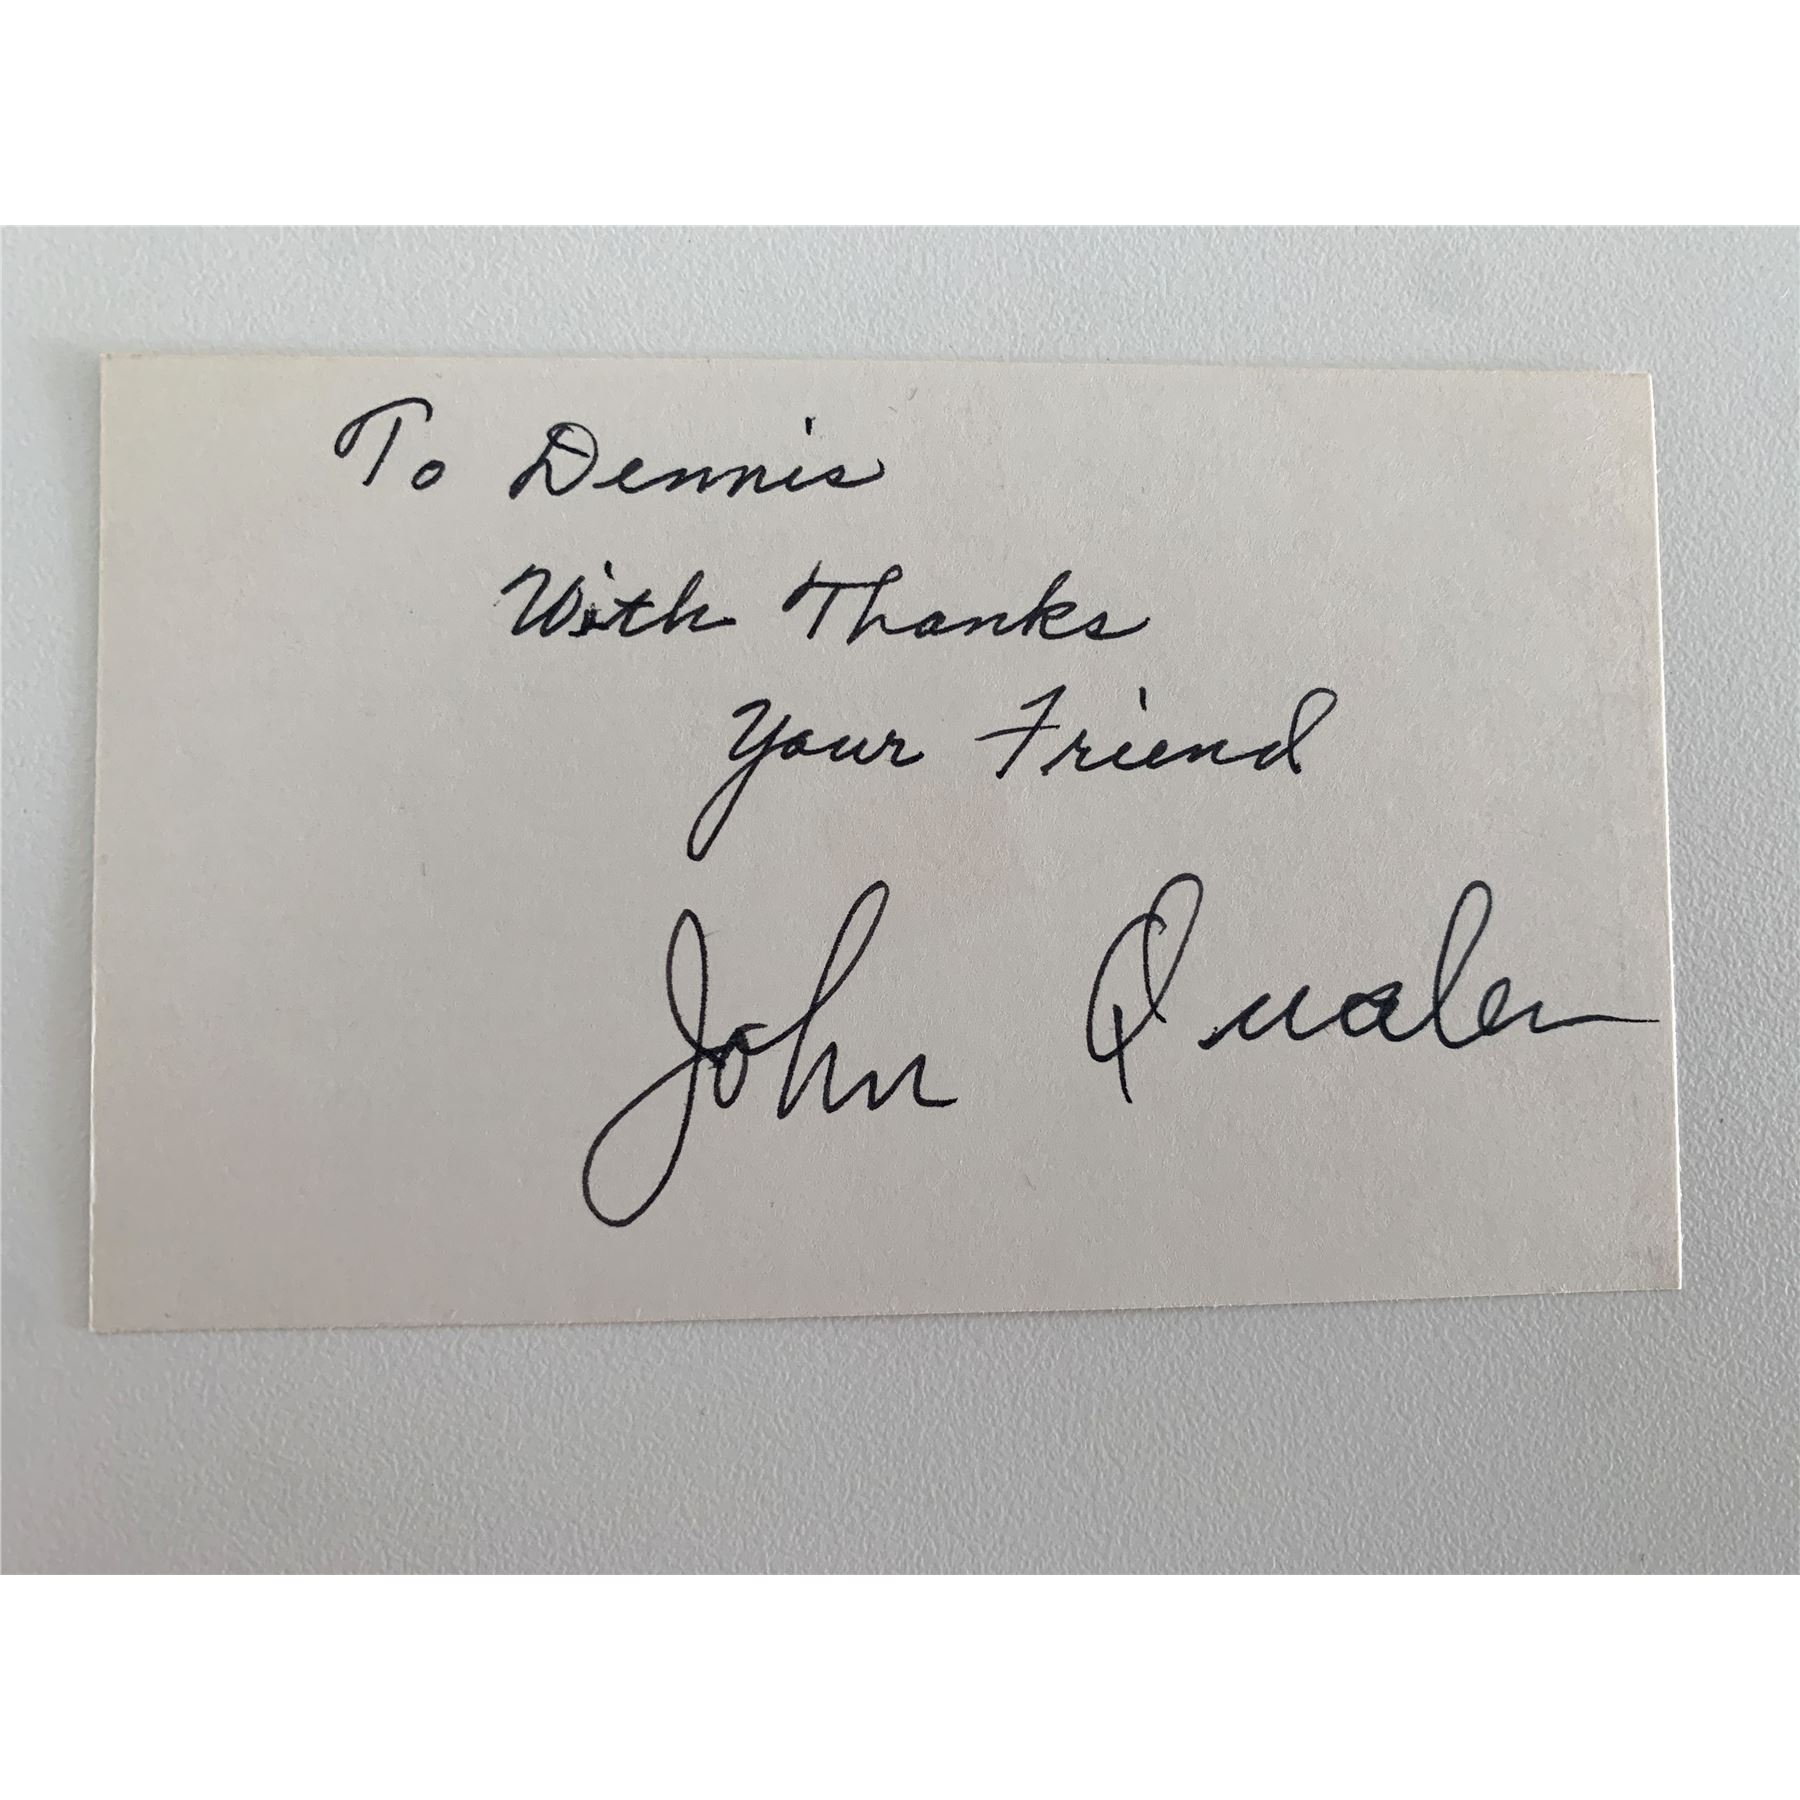 To Dennis
With Thanks
Your Friend
John Qualen